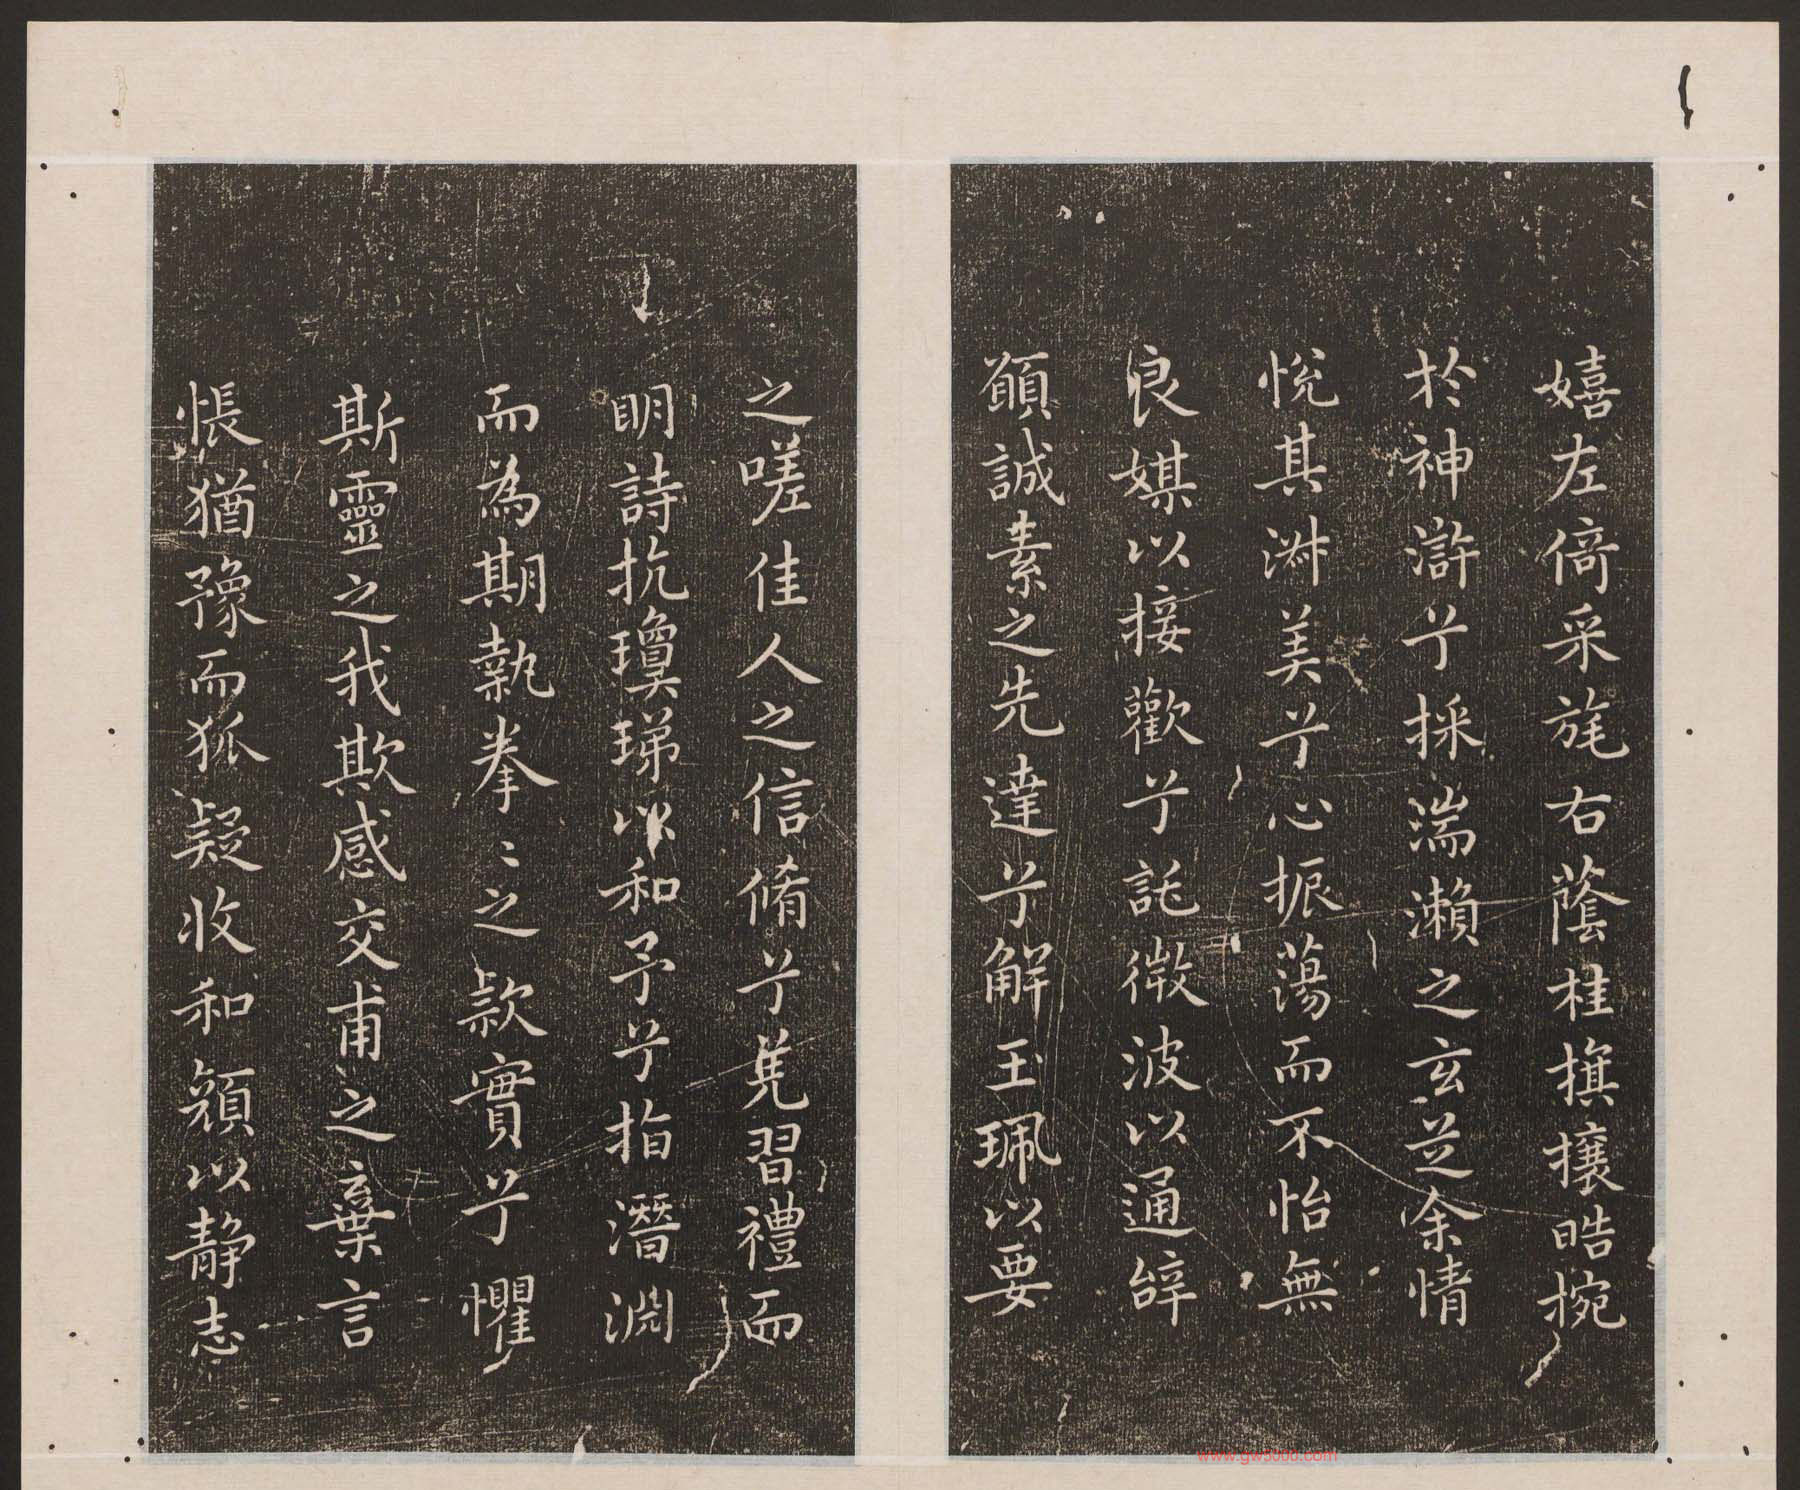 嬉左倚采旄右蔭桂旗攘皓捥
於神滸兮採湍瀨之玄芝余情
悅其淑美兮心振蕩而不怡無
良媒以接歡兮託微波以通辭
願誠素之先達兮解玉珮以要
之嗟佳人之信脩兮羌習禮而
明詩抗瓊珶以和予兮指潛淵
而為期執拳〻之款實兮懼
斯靈之我欺感交甫之棄言
悵猶豫而狐疑收和顏以静志
www.gw5000.com